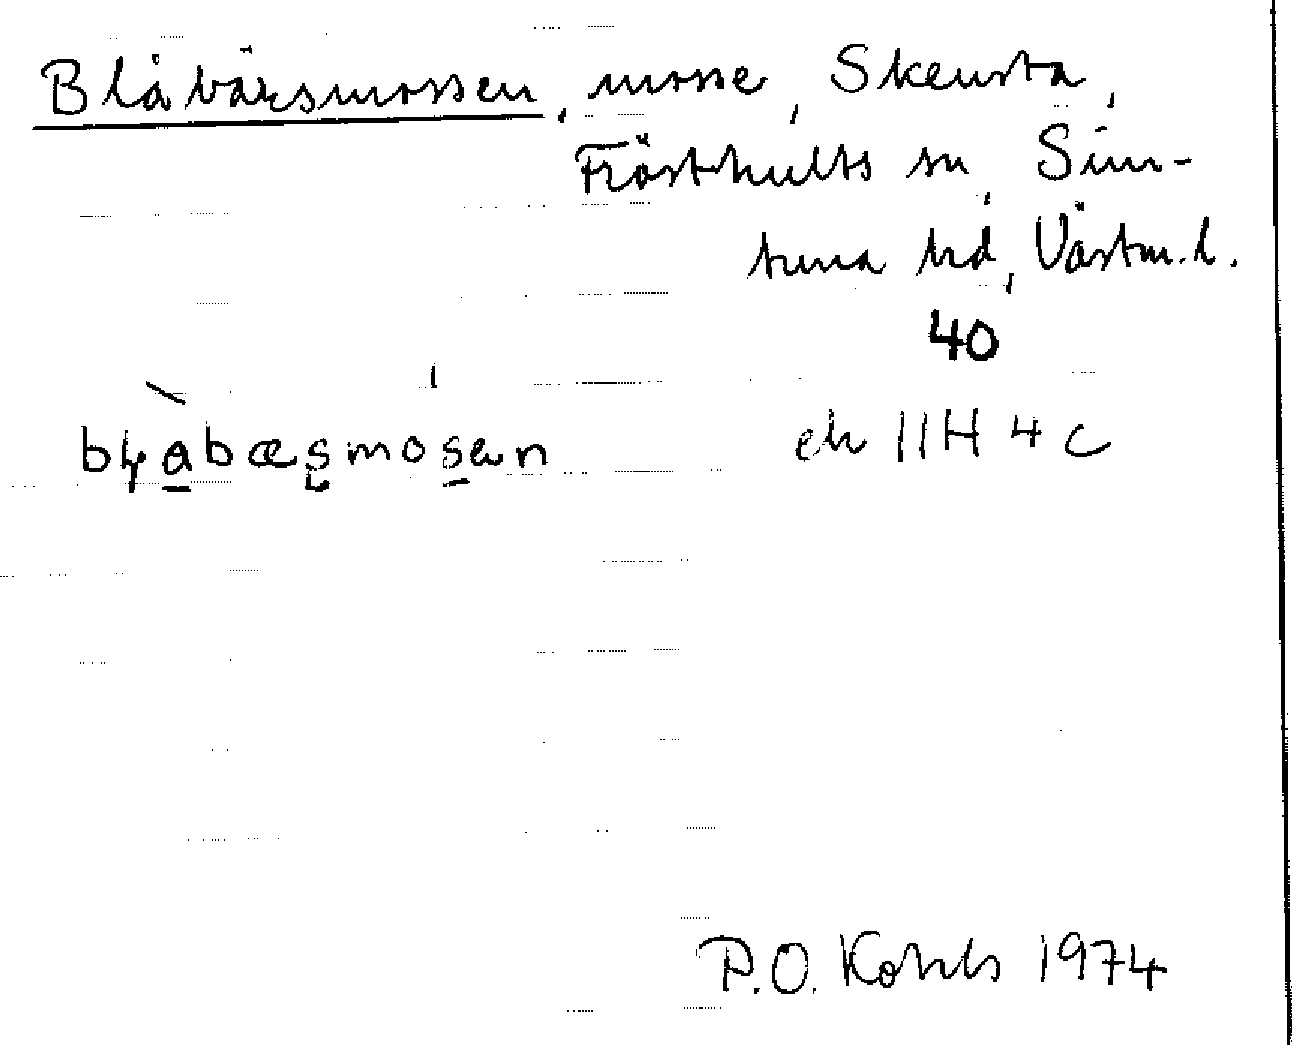 Blåbärsmossen, mosse, Skensta,
Frösthults sn, Sim-
tuna hd, Västm.l.
40
ek 11H 4 c
P.O. Kohls 1974